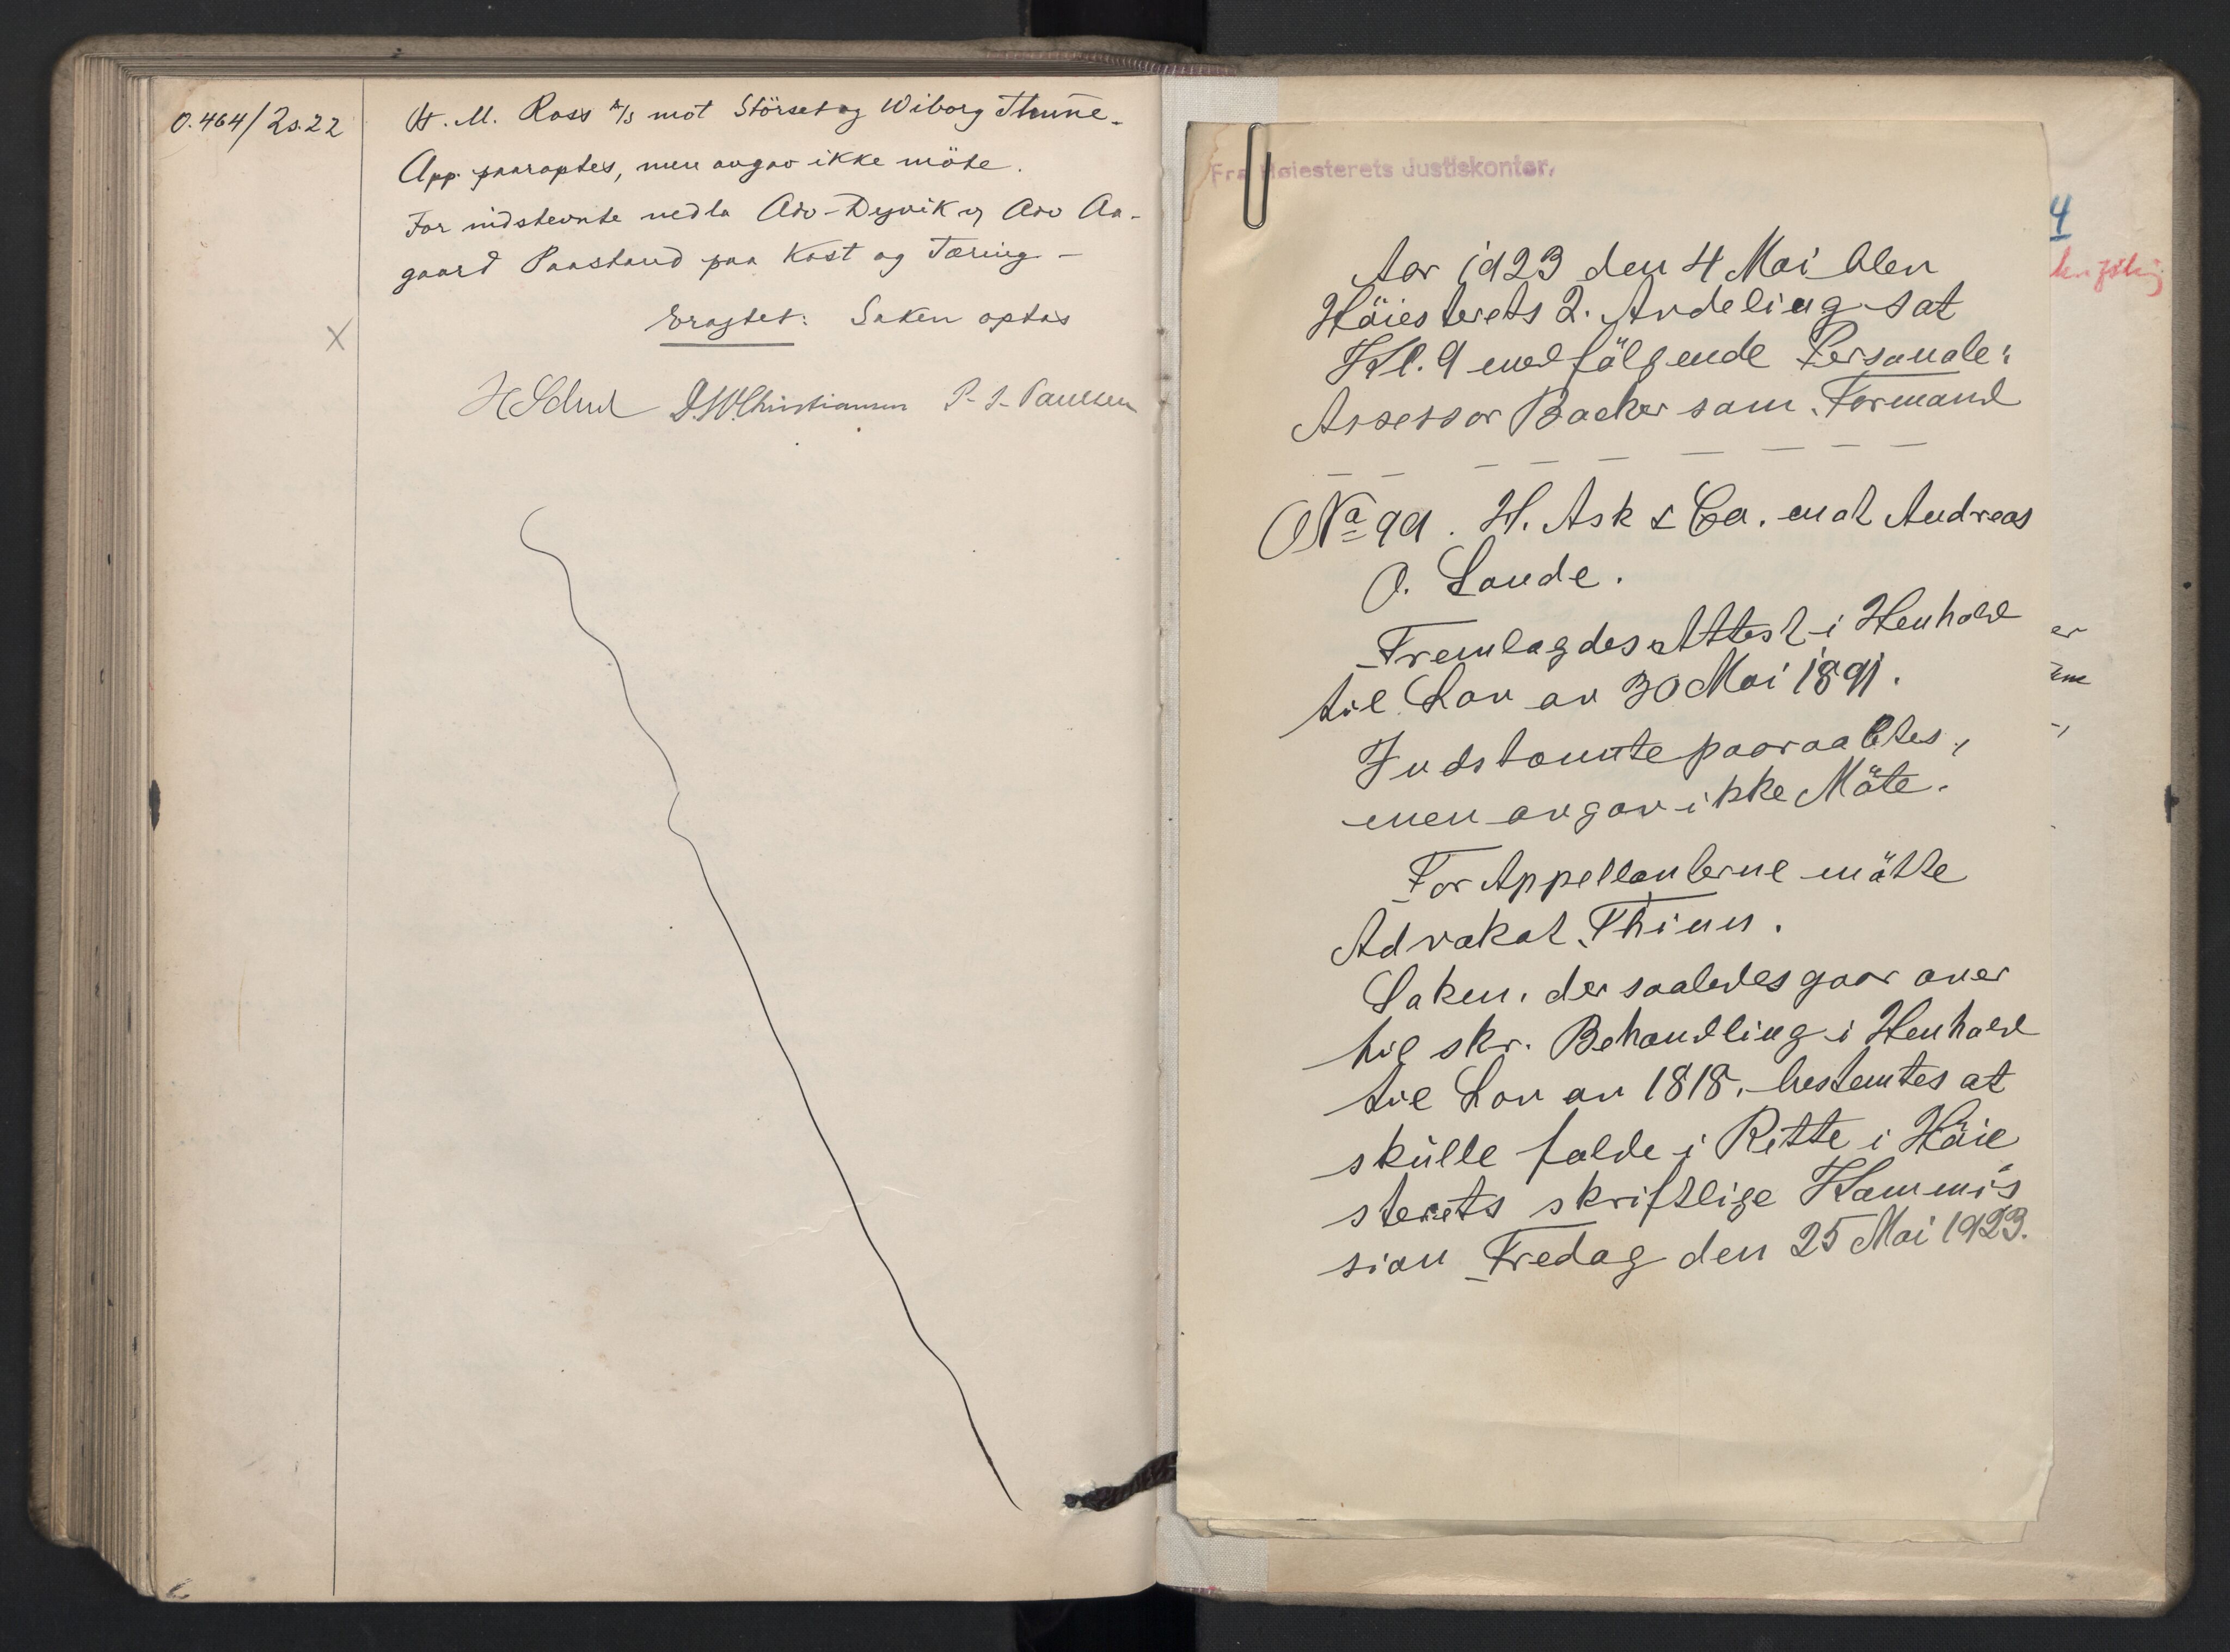 O.464/2s.22
H. M. Ross A/S mot Störset og Wiborg Thune.
App. paaroptes, men avgav ikke möte.
For indstevnte nedla Adv. Dyvik og Adv Aa-
gaard Paastand paa Kost og Tæring –
Eragtet: Saken optas
X
D. W. Christiansen P. I. Paulsen
Fra Høiesterets Justiskontor,
Aar 1923 den 4 Mai blev
Häiesterets 2. Avdeling sat
Kl. 9 med fölgende Personale:
Assessor Backer som Formand
No 99. H. Ask & Co. mot Andreas
O. Lande.
Fremlagdes Attest i Henhold
til Lov av 30 Mai 1891.
Indstevnte paaraabtes,
men avgav ikke Möte.
For Appellanterne mötte
Advokat Thinn.
Saken, der saaledes gaar over
til skr. Behandling i Henhold
til Lov av 1818, bestemtes at
skulle falde i Rette i Häie
sterets skriftlige Kommis
sion Fredag den 25 Mai 1923.
4
er